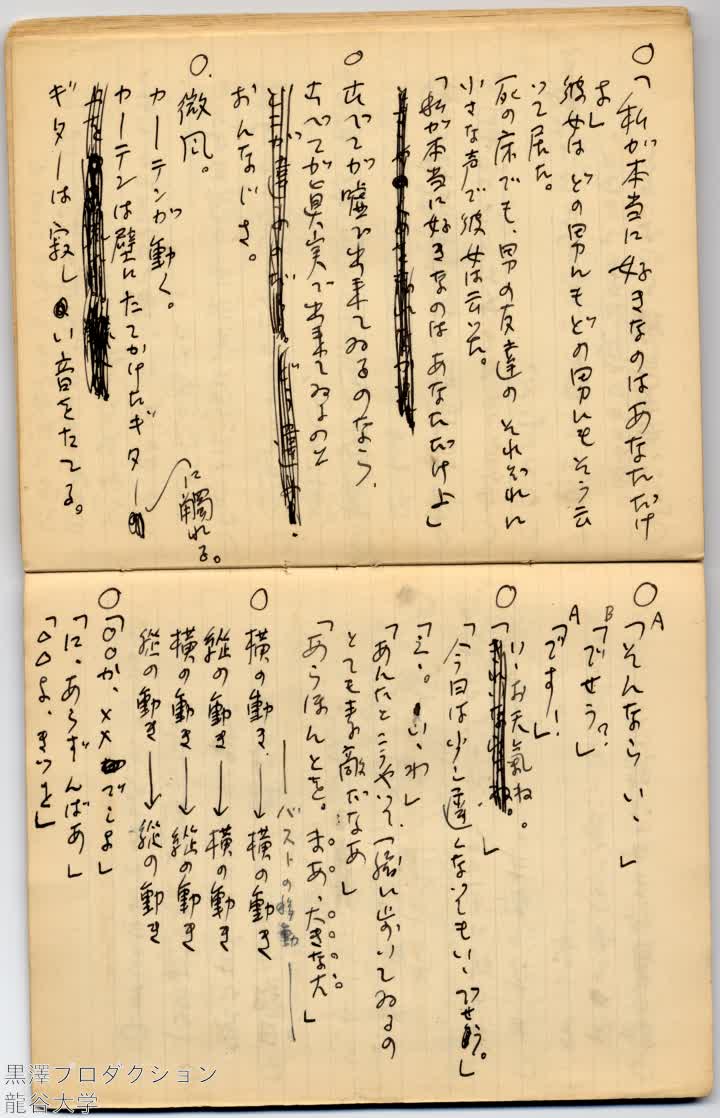 ○「私が本当に好きなのはあなただけ
よ」
彼女はどの男にもどの男にもそう云
って居た。
死の床でも、男の友達のそれぞれに
小さな声で彼女は云った。
「私が本当に好きなのはあなただけよ」
○すべてが嘘で出来てゐるのなら、
すべてが眞実で出来てゐるのと
おんなじさ。
○微風。
カーテンが動く。
カーテンは壁にたてかけたギター
に觸れる。
ギターは寂しい音をたてる。
○A「そんならいゝ」
B「でせう?」
A「です!」
○「いゝお天氣ね。」
「今日は少し違くないくてもいゝでせう。」
「えゝ。いゝわ」
「あんたとこうやって、一緒に歩いてゐるの
とても素敵だなあ」
「あらほんとを。まあ、大きな犬」
○横の動き→横の動き
バストの移動
縦の動き→横の動き
横の動き→縦の動き
縦の動き→縦の動き
○「○○か、××でこよ」
「に、あらずんばあ」
「△△よ、きっと」
黒澤プロダクション
龍谷大学